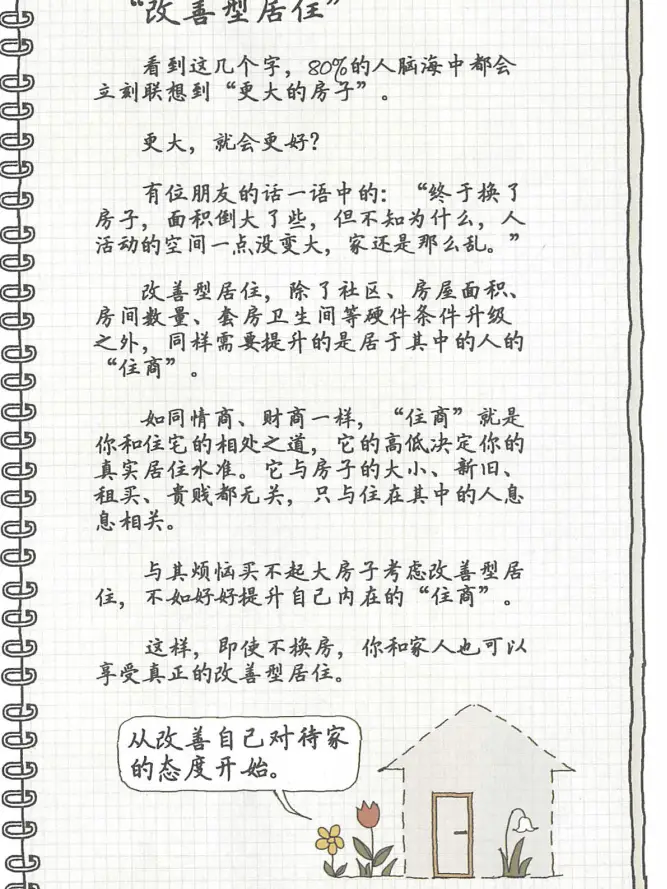 “改善型居住”
看到这几个字，80%的人脑海中都会
立刻联想到“更大的房子”。
更大，就会更好？
有位朋友的话一语中的：“终于换了
房子，面积倒大了些，但不知为什么，人
活动的空间一点没变大，家还是那么乱。”
改善型居住，除了社区、房屋面积、
房间数量、套房卫生间等硬件条件升级
之外，同样需要提升的是居于其中的人的
“住商”。
如同情商、财商一样，“住商”就是
你和住宅的相处之道，它的高低决定你的
真实居住水准。它与房子的大小、新旧、
租买、贵贱都无关，只与住在其中的人息
息相关。
与其烦恼买不起大房子考虑改善型居
住，不如好好提升自己内在的“住商”。
这样，即使不换房，你和家人也可以
享受真正的改善型居住。
从改善自己对待家
的态度开始。